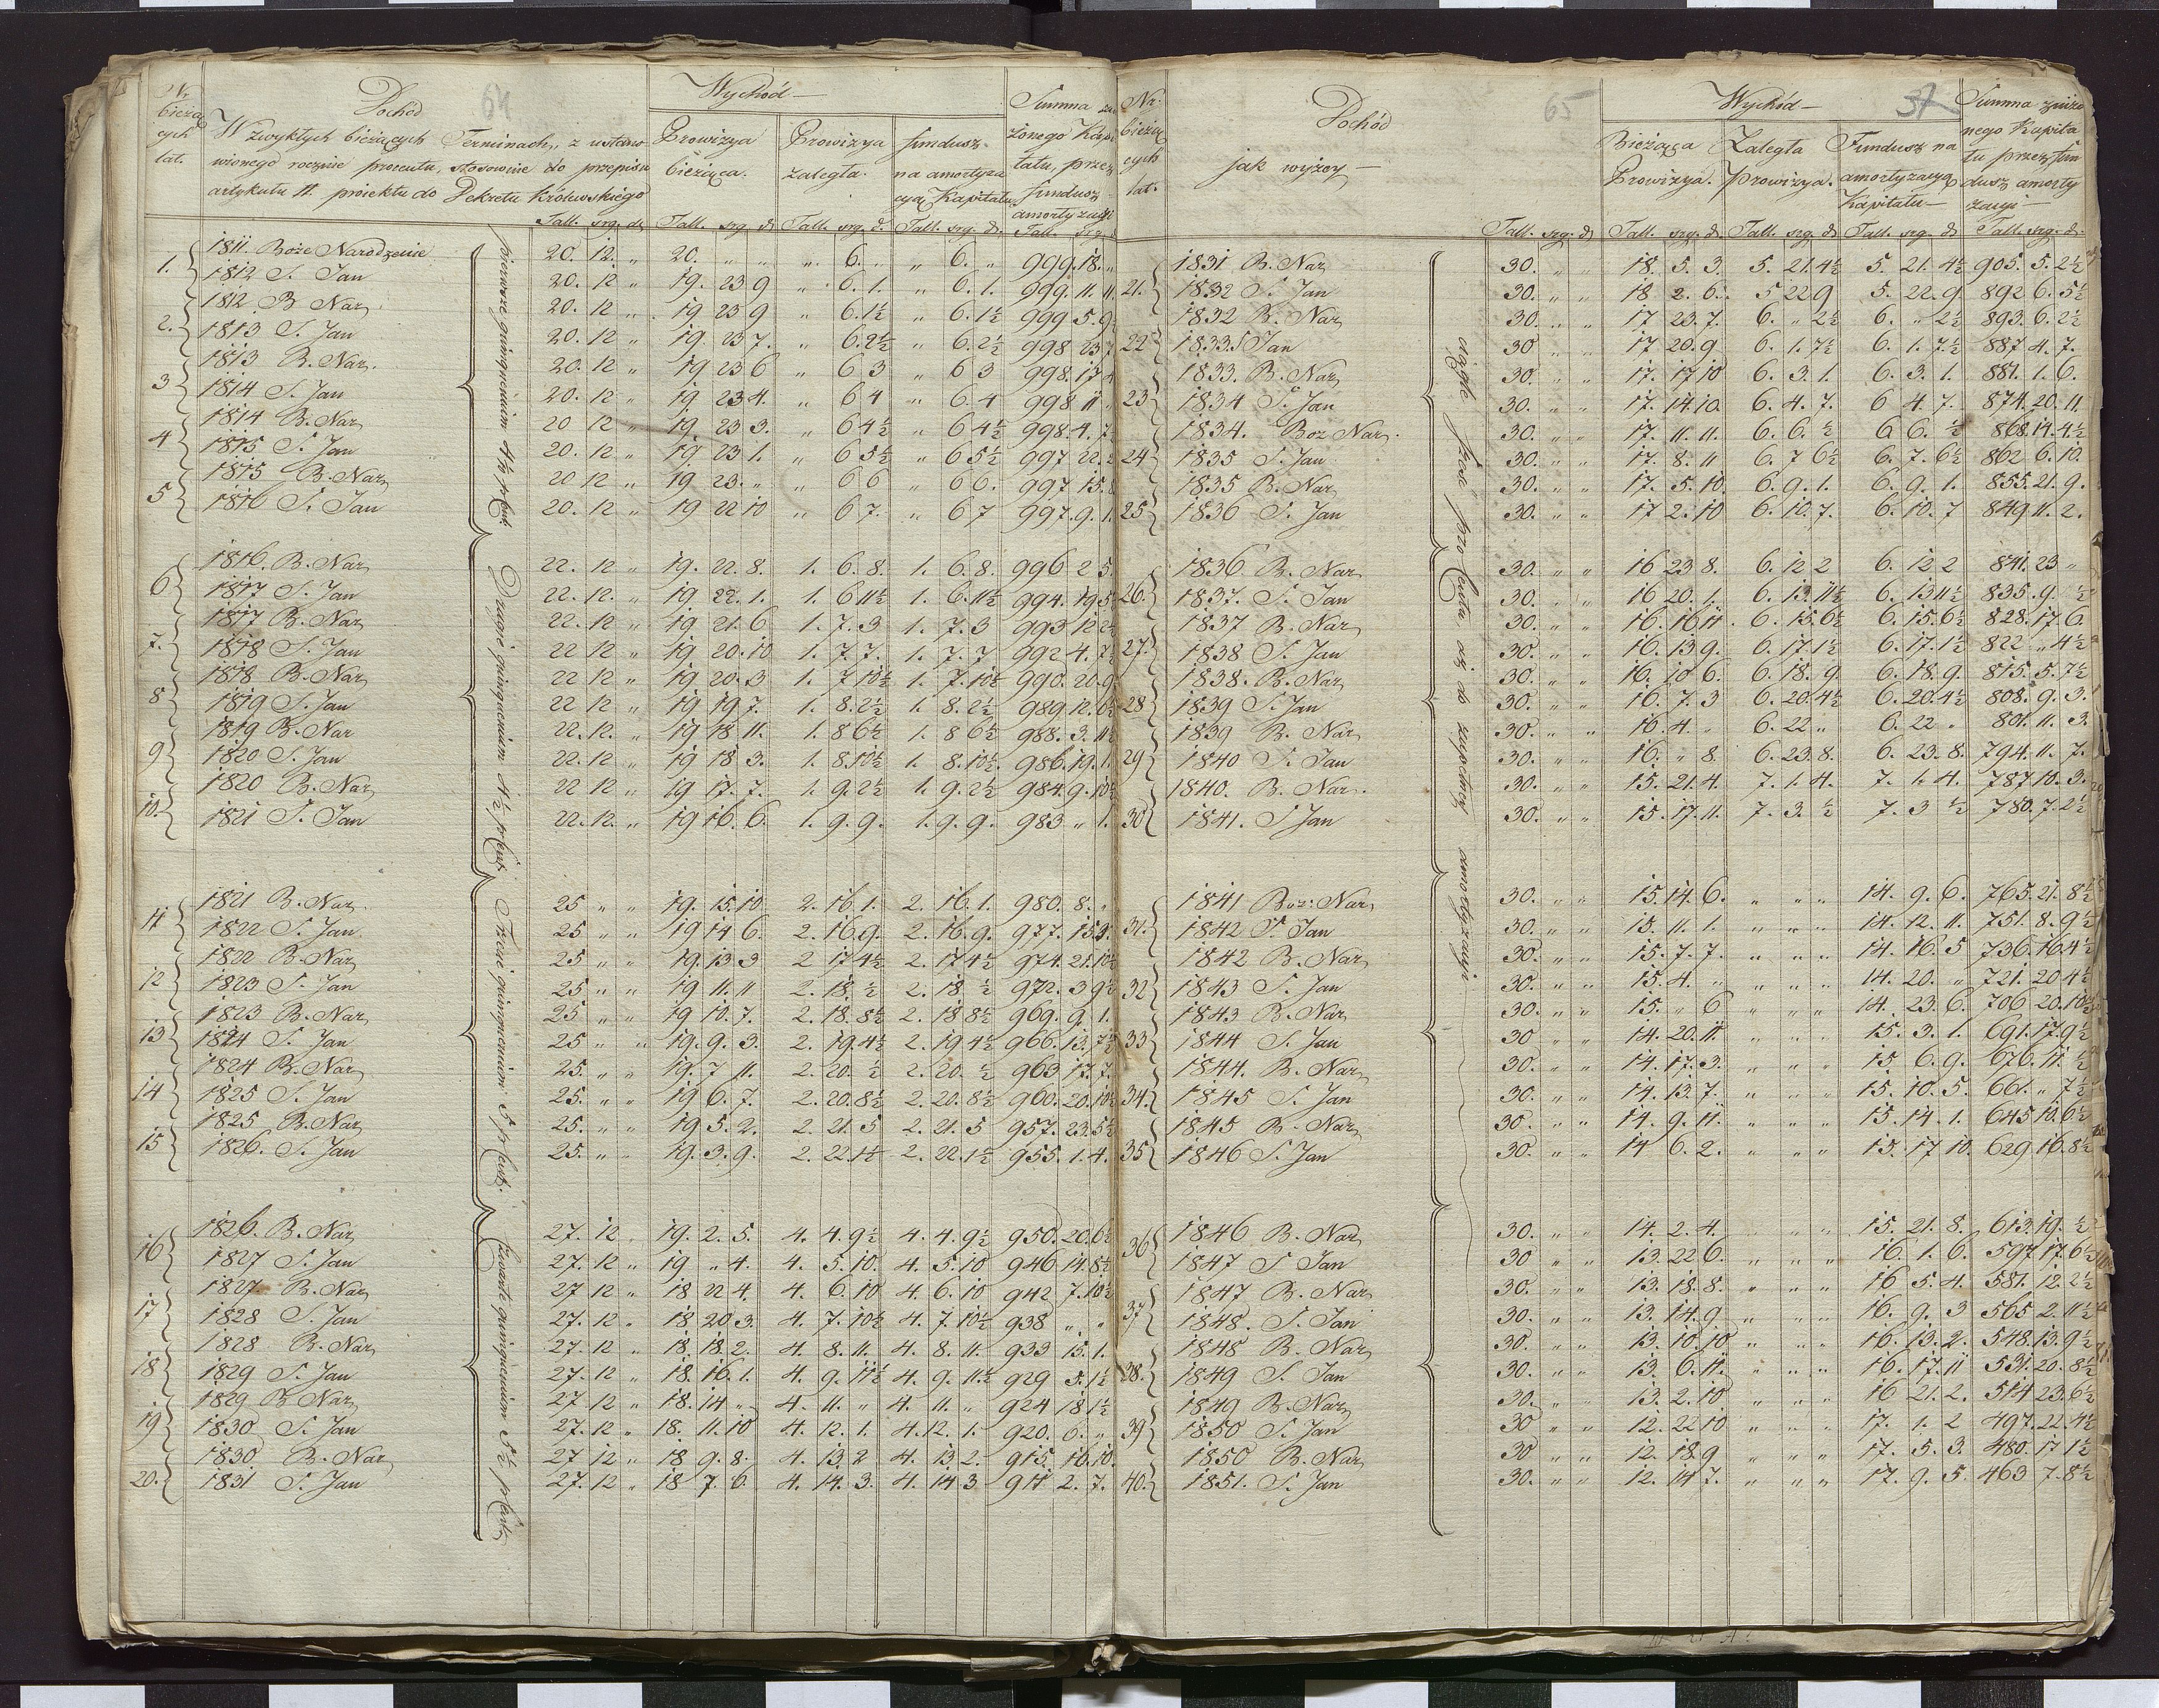 64
Nr bieżących lat.
Dochód
W zwykłych bieżących Terminach, z ustano
wionego rocznie procentu, stosownie do przepisu
artykułu 11. proiektu do Dekretu Królewskiego
Wychód
Prowizya bieżąca.
Prowizya zaległa.
fundusz na amortyza
cyą Kapitału
Summa
żonego Kapi
tału, przez
fundusz
Tall. srg. d. Tall. srg. d. Tall. srg. d. Tall. srg. d. Tall. srg.
pierwsze quinquenium 4 1/10 p Cent
1. 1811. Boże Narodzenie 20. 12. „ 20. „ „ „ 6. „ „ 6. „ 999. 18. „
1812 S. Jan 20. 12 „ 19. 23 9 „ 6. 1. „ 6. 1. 999. 11. 11.
2. 1812 B Nar. 20. 12 „ 19 23 9 „ 6. 1½ „ 6. 1½ 999 5. 9
1813 S. Jan 20. 12 „ 19. 23 7. „ 6. 2½ „ 6. 2½ 998 23 7
3 1813 B. Nar. 20. 12 „ 19 23 6 „ 6 3 „ 6 3 998. 17
1814 S. Jan 20. 12 „ 19 23 4. „ 6 4 „ 6. 4 998 11
4 1814 B. Nar 20 12 „ 19 23 3. „ 6 4½ „ 6 4½ 998. 4.
1815 S. Jan 20. 12 „ 19 23 1. „ 6 5½ „ 6 5½ 997 22.
5 1815 B. Nar 20 12 „ 19 23. „ „ 6 6 „ 6 6. 997 15.
1816 S. Jan 20. 12 „ 19 22 10 „ 6 7. „ 6 7 997. 9. 1.
Drugie quinquenium 4½ p Cent
6 1816. B. Nar 22. 12 „ 19. 22. 8. 1. 6. 8. 1. 6. 8. 996 2 5.
1817 S. Jan 22. 12. „ 19 22. 1. 1. 6 11½ 1. 6. 11½ 994. 19. 5
7. 1817 B. Nar 22. 12 „ 19 21. 6 1. 7. 3 1. 7. 3 993 12 2½
1818 S. Jan 22 12 „ 19 20. 10 1. 7. 7. 1. 7. 7 992 4. 7
8 1818 B. Nar 22 12 „ 19 20. 3 1. 7 10½ 1. 7. 10½ 990. 20. 9
1819 S. Jan 22 12 „ 19 19 7. 1. 8. 2½ 1. 8. 2½ 989. 12. 6½
9 1819 B. Nar 22. 12. „ 19 18 11. 1. 8 6½ 1. 8 6½ 988. 3. 11½
1820 S. Jan 22. 12 „ 19 18 3. 1. 8. 10½ 1. 8. 10½. 986. 19. 1.
10. 1820 B. Nar 22 12 „ 19 17. 7. 1. 9. 2½ 1. 9. 2½ 984. 9. 10½
1821 S. Jan 22. 12. „ 19 16. 6. 1. 9. 9. 1. 9. 9. 983 „ 1.
Trzecie quinquenium 5 p Cent.
11 1821 B. Nar. 25 „ „ 19. 15. 10 2. 16. 1. 2. 16. 1. 980. 8. „
1822 S. Jan 25 „ „ 19 14 6. 2. 16. 9. 2. 16. 9. 977. 15. 3.
12 1822 B. Nar 25 „ „ 19. 13 3 2 17 4½ 2. 17 4½ 974. 21. 10½
1823 S. Jan 25 „ „ 19 11. 11 2. 18. ½ 2. 18. ½ 972. 3 9½
13 1823 B. Nar 25 „ „ 19 10. 7. 2. 18. 8½ 2. 18 8½ 969. 9. 1.
1824 S. Jan 25 „ „ 19. 9. 3. 2. 19. 4½ 2. 19 4½ 966. 13. 7½
14 1824 B. Nar 25. „ „ 19. 7 11. 2. 20. ½ 2. 20. ½ 963 17. 7.
1825 S. Jan 25. „ „ 19 6. 7. 2. 20. 8½ 2. 20. 8½ 960. 20. 10½
15 1825 B. Nar 25. „ „ 19 5. 2. 2. 21. 5 2. 21. 5 957. 23. 5½
1826. S. Jan 25. „ „ 19. 3. 9. 2. 22. 1½ 2. 22. 1½ 955. 1. 4.
Czwarte quinquenium 5½ p Cent
16 1826. B. Nar 27. 12 „ 19. 2. 5. 4. 4. 9½ 4. 4. 9½ 950. 20. 6½
1827 S. Jan 27. 12 „ 19 „ 4. 4. 5. 10. 4. 5. 10 946 14. 8½
17 1827. B. Nar 27 12 „ 18 22 4. 4. 6. 10 4. 6. 10 942 7. 10½
1828 S. Jan 27. 12 „ 18 20 3. 4. 7. 10½ 4. 7. 10½ 938 „ „
18 1828 B. Nar 27. 12 „ 18. 18. 2. 4. 8. 11. 4. 8. 11. 933 15. 1.
1829 S. Jan 27. 12 „ 18. 16. 1. 4. 9. 11½ 4. 9. 11½ 929 5. 1½
19 1829 B Nar 27 12 „ 18. 14 „ 4. 11. „ 4. 11. „ 924 18 1½
1830 S. Jan 27. 12 „ 18. 11. 10 4. 12. 1. 4. 12. 1. 920. 6. „
20. 1830 B. Nar 27 12 „ 18 9. 8. 4. 13. 2 4. 13. 2. 915. 16. 10.
1831 S. Jan 27. 12 „ 18 7. 6. 4. 14. 3. 4. 14 3 911 2. 7.
65
37
Nr. bieżą
cych
lat.
Dochód
jak wyżey
Wychód
Bieżąca Prowizya.
Zaległa Prowizya.
Fundusz na
amortyzacyą
Kapitału
Summa zniżo
nego Kapita
łu przez fun
dusz amorty
zacyi
Tall. srg. d. Tall. srg. d. Tall. srg. d. Tall. srg. d. Tall. srg. d.
ciągle sześć pro Centa, aż do zupełney amortyzacyi
21. 1831 B. Nar 30. „ „ 18. 5. 3. 5. 21. 4½ 5. 21. 4½ 905. 5. 2½
1832 S. Jan 30. „ „ 18 2. 6. 5 22 9 5. 22. 9 892 6. 5½
22 1832 B. Nar 30. „ „ 17 23. 7. 6. „ 2½ 6. „ 2½ 893. 6. 2½
1833. S Jan 30 „ „ 17 20. 9 6. 1. 7½ 6. 1. 7½ 887 4. 7.
23 1833. B. Nar 30. „ „ 17. 17 10 6. 3. 1. 6. 3. 1. 881. 1. 6.
1834 S. Jan 30. „ „ 17. 14. 10. 6. 4. 7. 6 4. 7. 874. 20. 11.
24 1834. Boz Nar. 30. „ „ 17. 11. 11. 6. 6. ½ 6 6. ½ 868. 14. 4½
1835 S. Jan 30. „ „ 17. 8. 11 6. 7 6½ 6. 7. 6½ 862 6. 10.
25 1835 B. Nar 30. „ „ 17. 5. 10. 6. 9. 1. 6. 9. 1. 855. 21. 9.
1836 S. Jan 30. „ „ 17 2. 10 6. 10. 7. 6. 10. 7 849 11. 2.
26. 1836 B. Nar 30. „ „ 16 23 8. 6. 12 2 6. 12 2 841. 23 „
1837. S. Jan 30. „ „ 16 20. 1. 6. 13. 11½ 6. 13 11½ 835. 9. ½
27. 1837 B. Nar 30. „ „ 16. 16 11. 6. 15. 6½ 6. 15. 6½ 828. 17 6.
1838 S. Jan 30. „ „ 16. 13 9. 6. 17. 1½ 6. 17. 1½ 822 „ 4½
28 1838. B. Nar 30. „ „ 16. 10 6. 6. 18. 9. 6. 18. 9. 815. 5. 7½
1839 S. Jan 30. „ „ 16. 7. 3 6. 20. 4½ 6. 20. 4½ 808. 9. 3.
29 1839 B. Nar 30. „ „ 16. 4. „ 6. 22 „ 6. 22 „ 801. 11. 3.
1840 S. Jan 30. „ „ 16. „ 8. 6. 23. 8. 6. 23. 8. 794. 11. 7.
30 1840. B. Nar. 30. „ „ 15. 21. 4. 7. 1. 4. 7. 1. 4. 787. 10. 3.
1841. S Jan 30. „ „ 15. 17. 11. 7. 3. ½ 7. 3 ½ 780. 7. 2½
31. 1841 Boz: Nar 30. „ „ 15. 14. 6. „ „ „ 14. 9. 6. 765. 21. 8½
1842 S. Jan 30. „ „ 15. 11. 1. „ „ „ 14. 12. 11. 751. 8. 9½
32 1842 B. Nar 30. „ „ 15. 7. 7. „ „ „ 14. 16. 5 736. 16. 4½
1843 S. Jan 30. „ „ 15. 4. „ „ „ „ 14. 20. „ 721. 20 4½
33 1843 B. Nar 30. „ „ 15. „ 6 „ „ „ 14. 23. 6. 706 20. 10½
1844 S. Jan 30 „ „ 14. 20. 11. „ „ „ 15. 3. 1. 691. 17. 9½
34. 1844. B. Nar 30. „ „ 14. 17. 3. „ „ „ 15 6. 9. 676. 11. ½
1845 S. Jan 30. „ „ 14. 13. 7. „ „ „ 15. 10. 5. 661. „ 7½
35 1845 B. Nar 30. „ „ 14. 9. 11. „ „ „ 15. 14. 1. 645 10. 6½
1846 S. Jan 30. „ „ 14 6. 2. „ „ „ 15. 17 10. 629. 16. 8½
36 1846 B. Nar 30. „ „ 14. 2. 4. „ „ 15. 21. 8. 613. 19. ½
1847 S Jan 30 „ „ 13. 22 6. „ „ „ 16. 1. 6. 597 17. 6½
37 1847 B. Nar 30. „ „ 13. 18. 8. „ „ „ 16 5. 4. 581. 12. 2½
1848. S. Jan 30. „ „ 13. 14. 9 „ „ „ 16. 9. 3 565 2. 11½
38. 1848 B. Nar 30 „ „ 13. 10. 10 „ „ „ 16. 13. 2. 548. 13. 9½
1849 S. Jan 30. „ „ 13. 6. 11. „ „ „ 16. 17. 11 531. 20. 8½
39 1849 B. Nar 30. „ „ 13. 2. 10 „ „ „ 16 21. 2. 514 23. 6½
1850 S. Jan 30 „ „ 12. 22 10 „ „ „ 17. 1. 2 497. 22. 4½
40. 1850 B. Nar 30 „ „ 12. 18. 9 „ „ „ 17. 5. 3. 480. 17 1½
1851. S. Jan 30. „ „ 12. 14 7. „ „ „ 17. 9. 5. 463 7. 8½